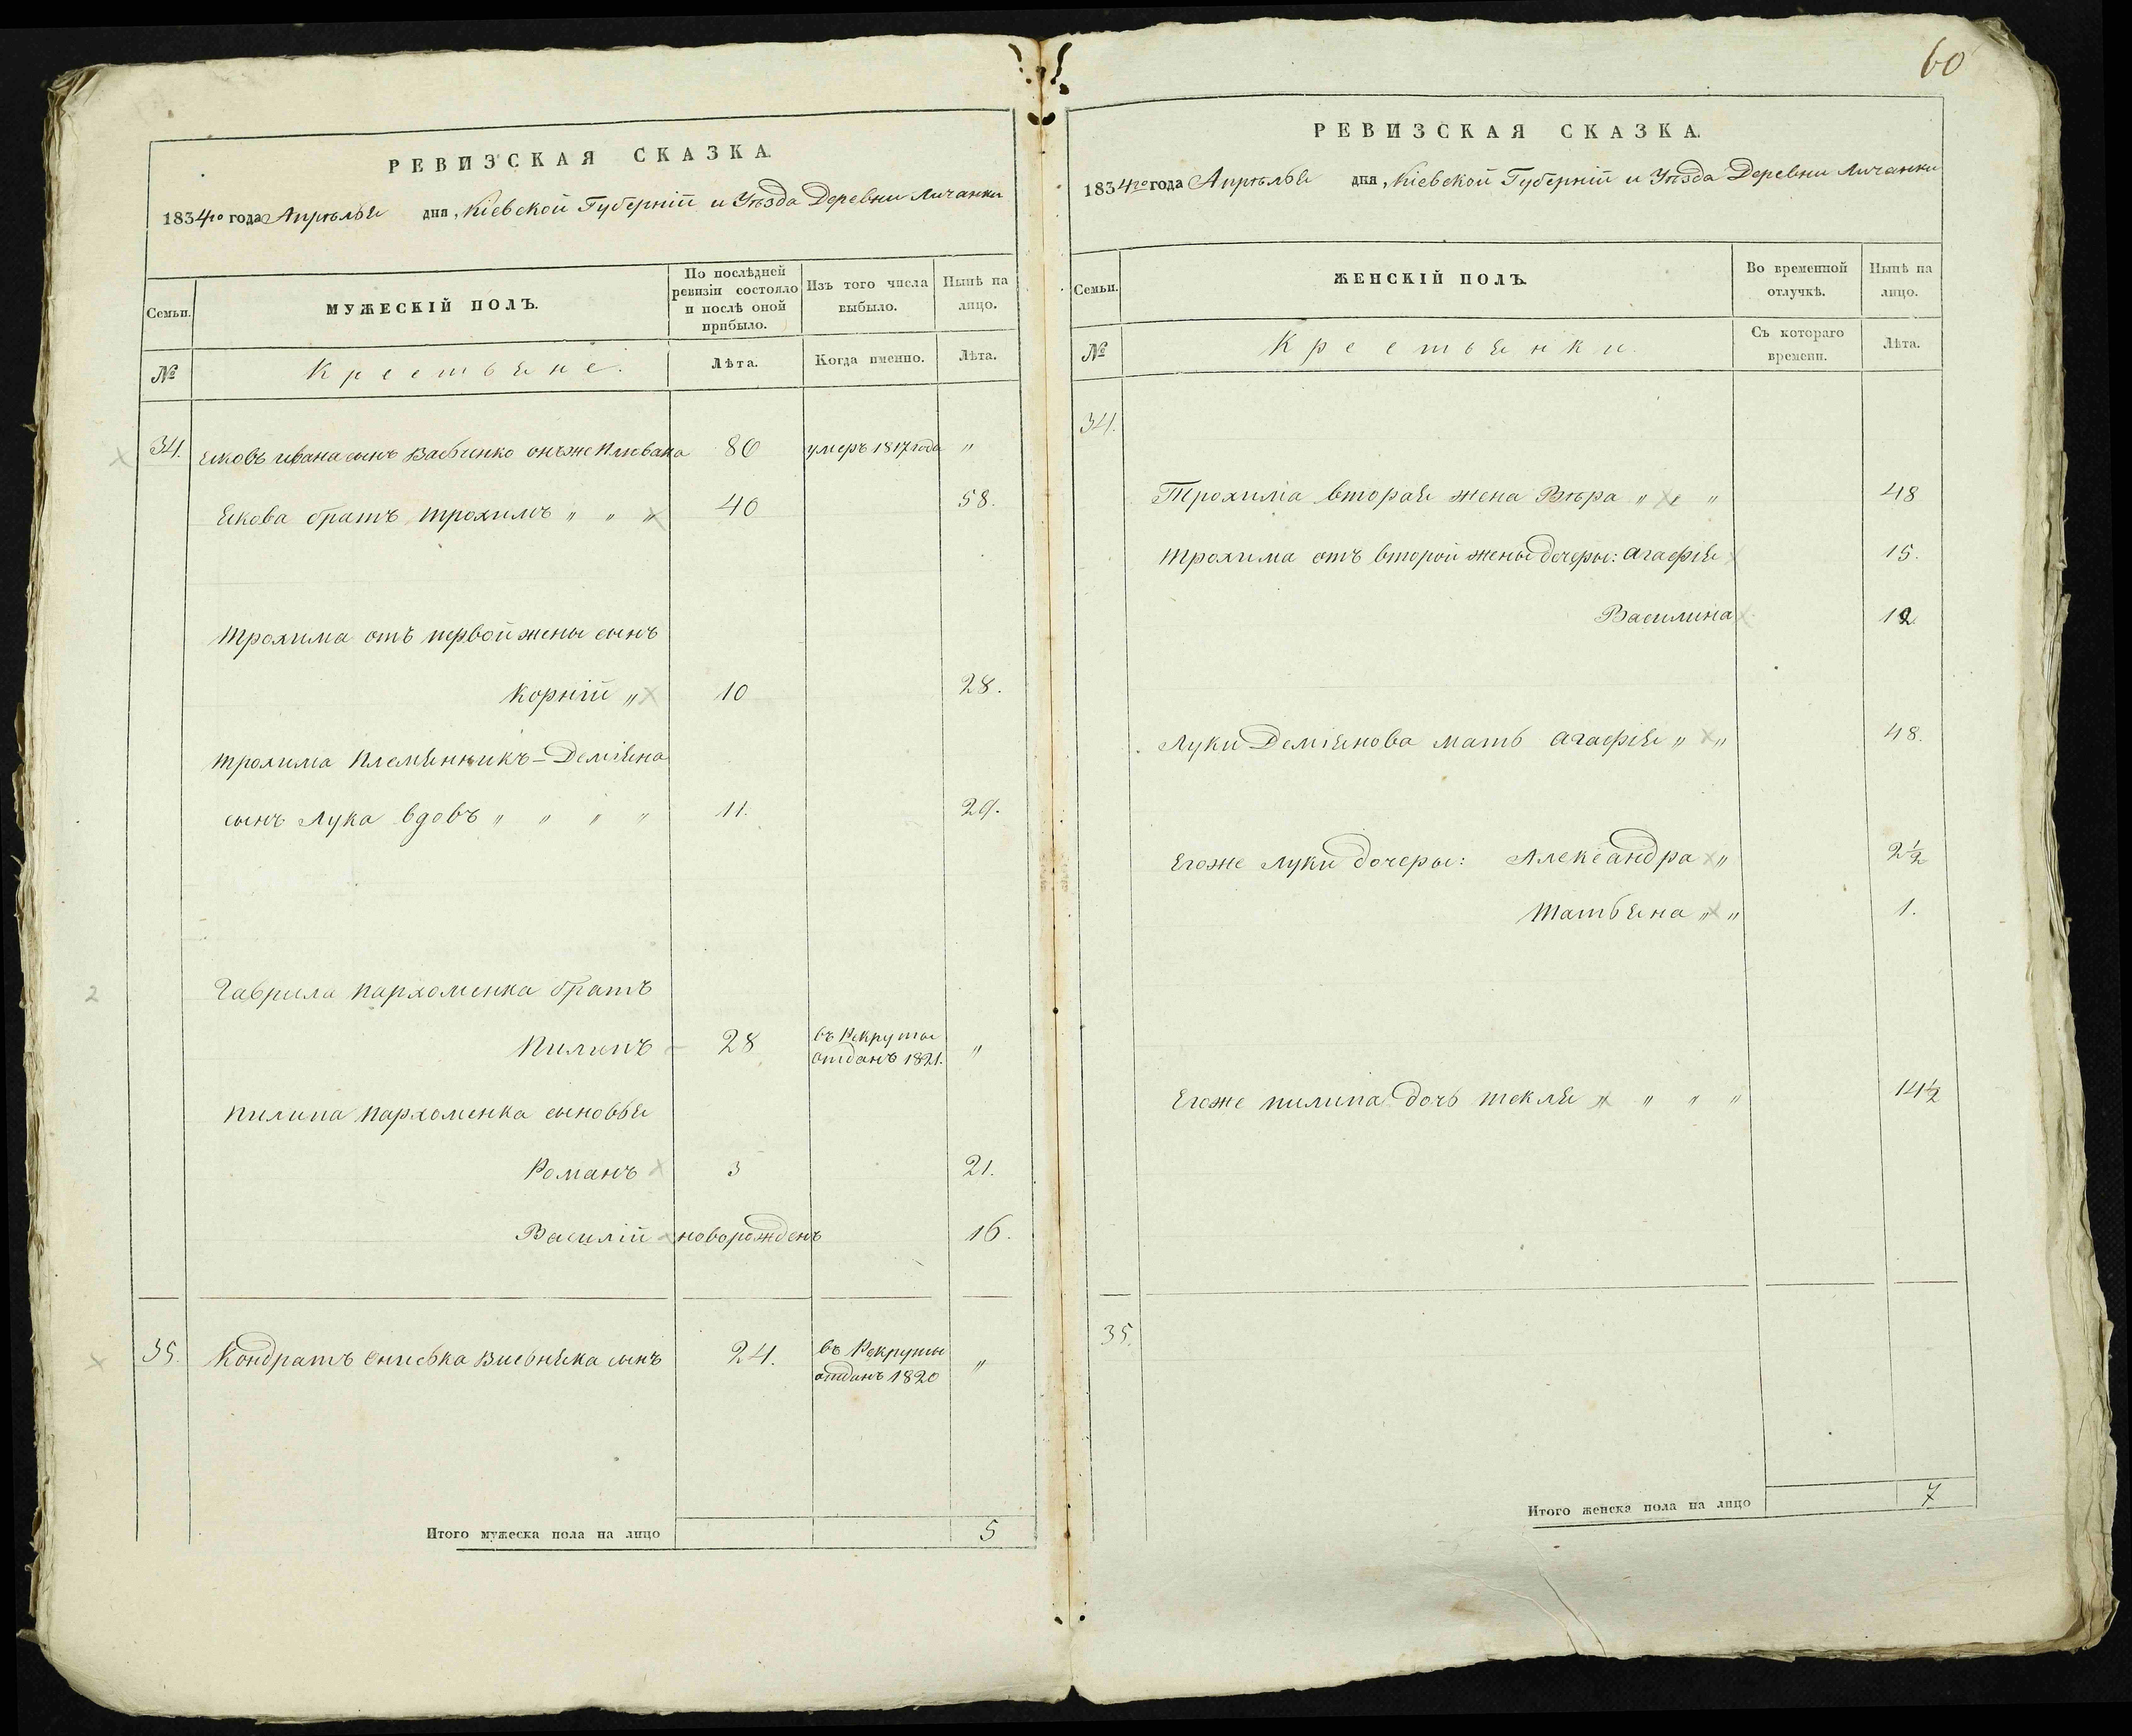 60
РЕВИЗСКАЯ СКАЗКА.
1834го года Апрѣля дня, Кіевской Губерніи и Уѣзда Деревни Личанки
Семьи.
МУЖЕСКІЙ ПОЛЪ.
По послѣдней ревизіи состояло и послѣ оной прибыло.
Изъ того числа выбыло.
Нынѣ на лицо.
№
Крестьяне.
Лѣта.
Когда именно.
Лѣта.
34. Яковъ Ивана сынъ онъже 80 умеръ 1817 года "
Якова братъ Трохимъ " " " 40 58.
Трохима отъ первой жены сынъ
Корній " 10 28.
Трохима племянникъ - Деміяна
сынъ Лука вдовъ " " " " 11. 29.
2
Гаврила Пархоменка братъ
Пилипъ 28 въ Рекруты отданъ 1821. "
Пилипа Пархоменка сыновья
Романъ 3 21.
Василій новорожденъ 16.
35. Кондратъ сынъ 24. въ Рекруты отданъ 1820 "
Итого мужеска пола на лицо 5
РЕВИЗСКАЯ СКАЗКА.
1834го года Апрѣля дня, Кіевской Губерніи и Уѣзда Деревни Личанки
Семьи.
ЖЕНСКІЙ ПОЛЪ.
Во временной отлучкѣ.
Нынѣ на лицо.
№
Крестьянки.
Съ котораго времени.
Лѣта.
34.
Трохима вторая жена Вѣра " " " 48
Трохима отъ второй жены дочеры: Агафія 15.
Василина 12
Луки Деміянова мать Агафія " " 48.
Егоже Луки дочеры: Александра " 2½
Татьяна " " 1.
Егоже Пилипа дочь Текля " " " " 14½
35.
Итого женска пола на лицо 7